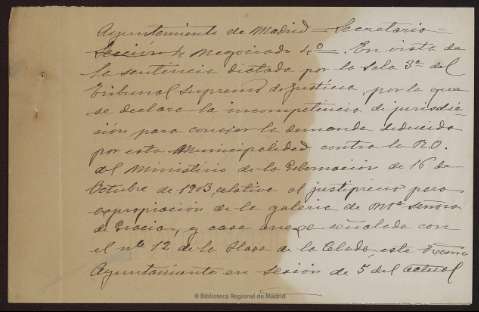 Ayuntamiento de Madrid = Secretaria =
Sección 4 Negociado 4º = En vista de
la sentencia dictada por la Sala 3ª del
Tribunal Supremo de Justicia, por la que
se declara la incompetencia de jurisdic-
ción para conocer la demanda deducida
por esta Municipalidad contra la R.O.
del Ministerio de la Gobernación de 16 de
Octubre de 1903, relativa al justiprecio para
expropiación de la galeria de Ntra Señora
de Gracia, y casa anexa señalada con
el nº 12 de la Plaza de la Cebada, este Excmo
Ayuntamiento en sesión de 5 del actual
© Biblioteca Regional de Madrid